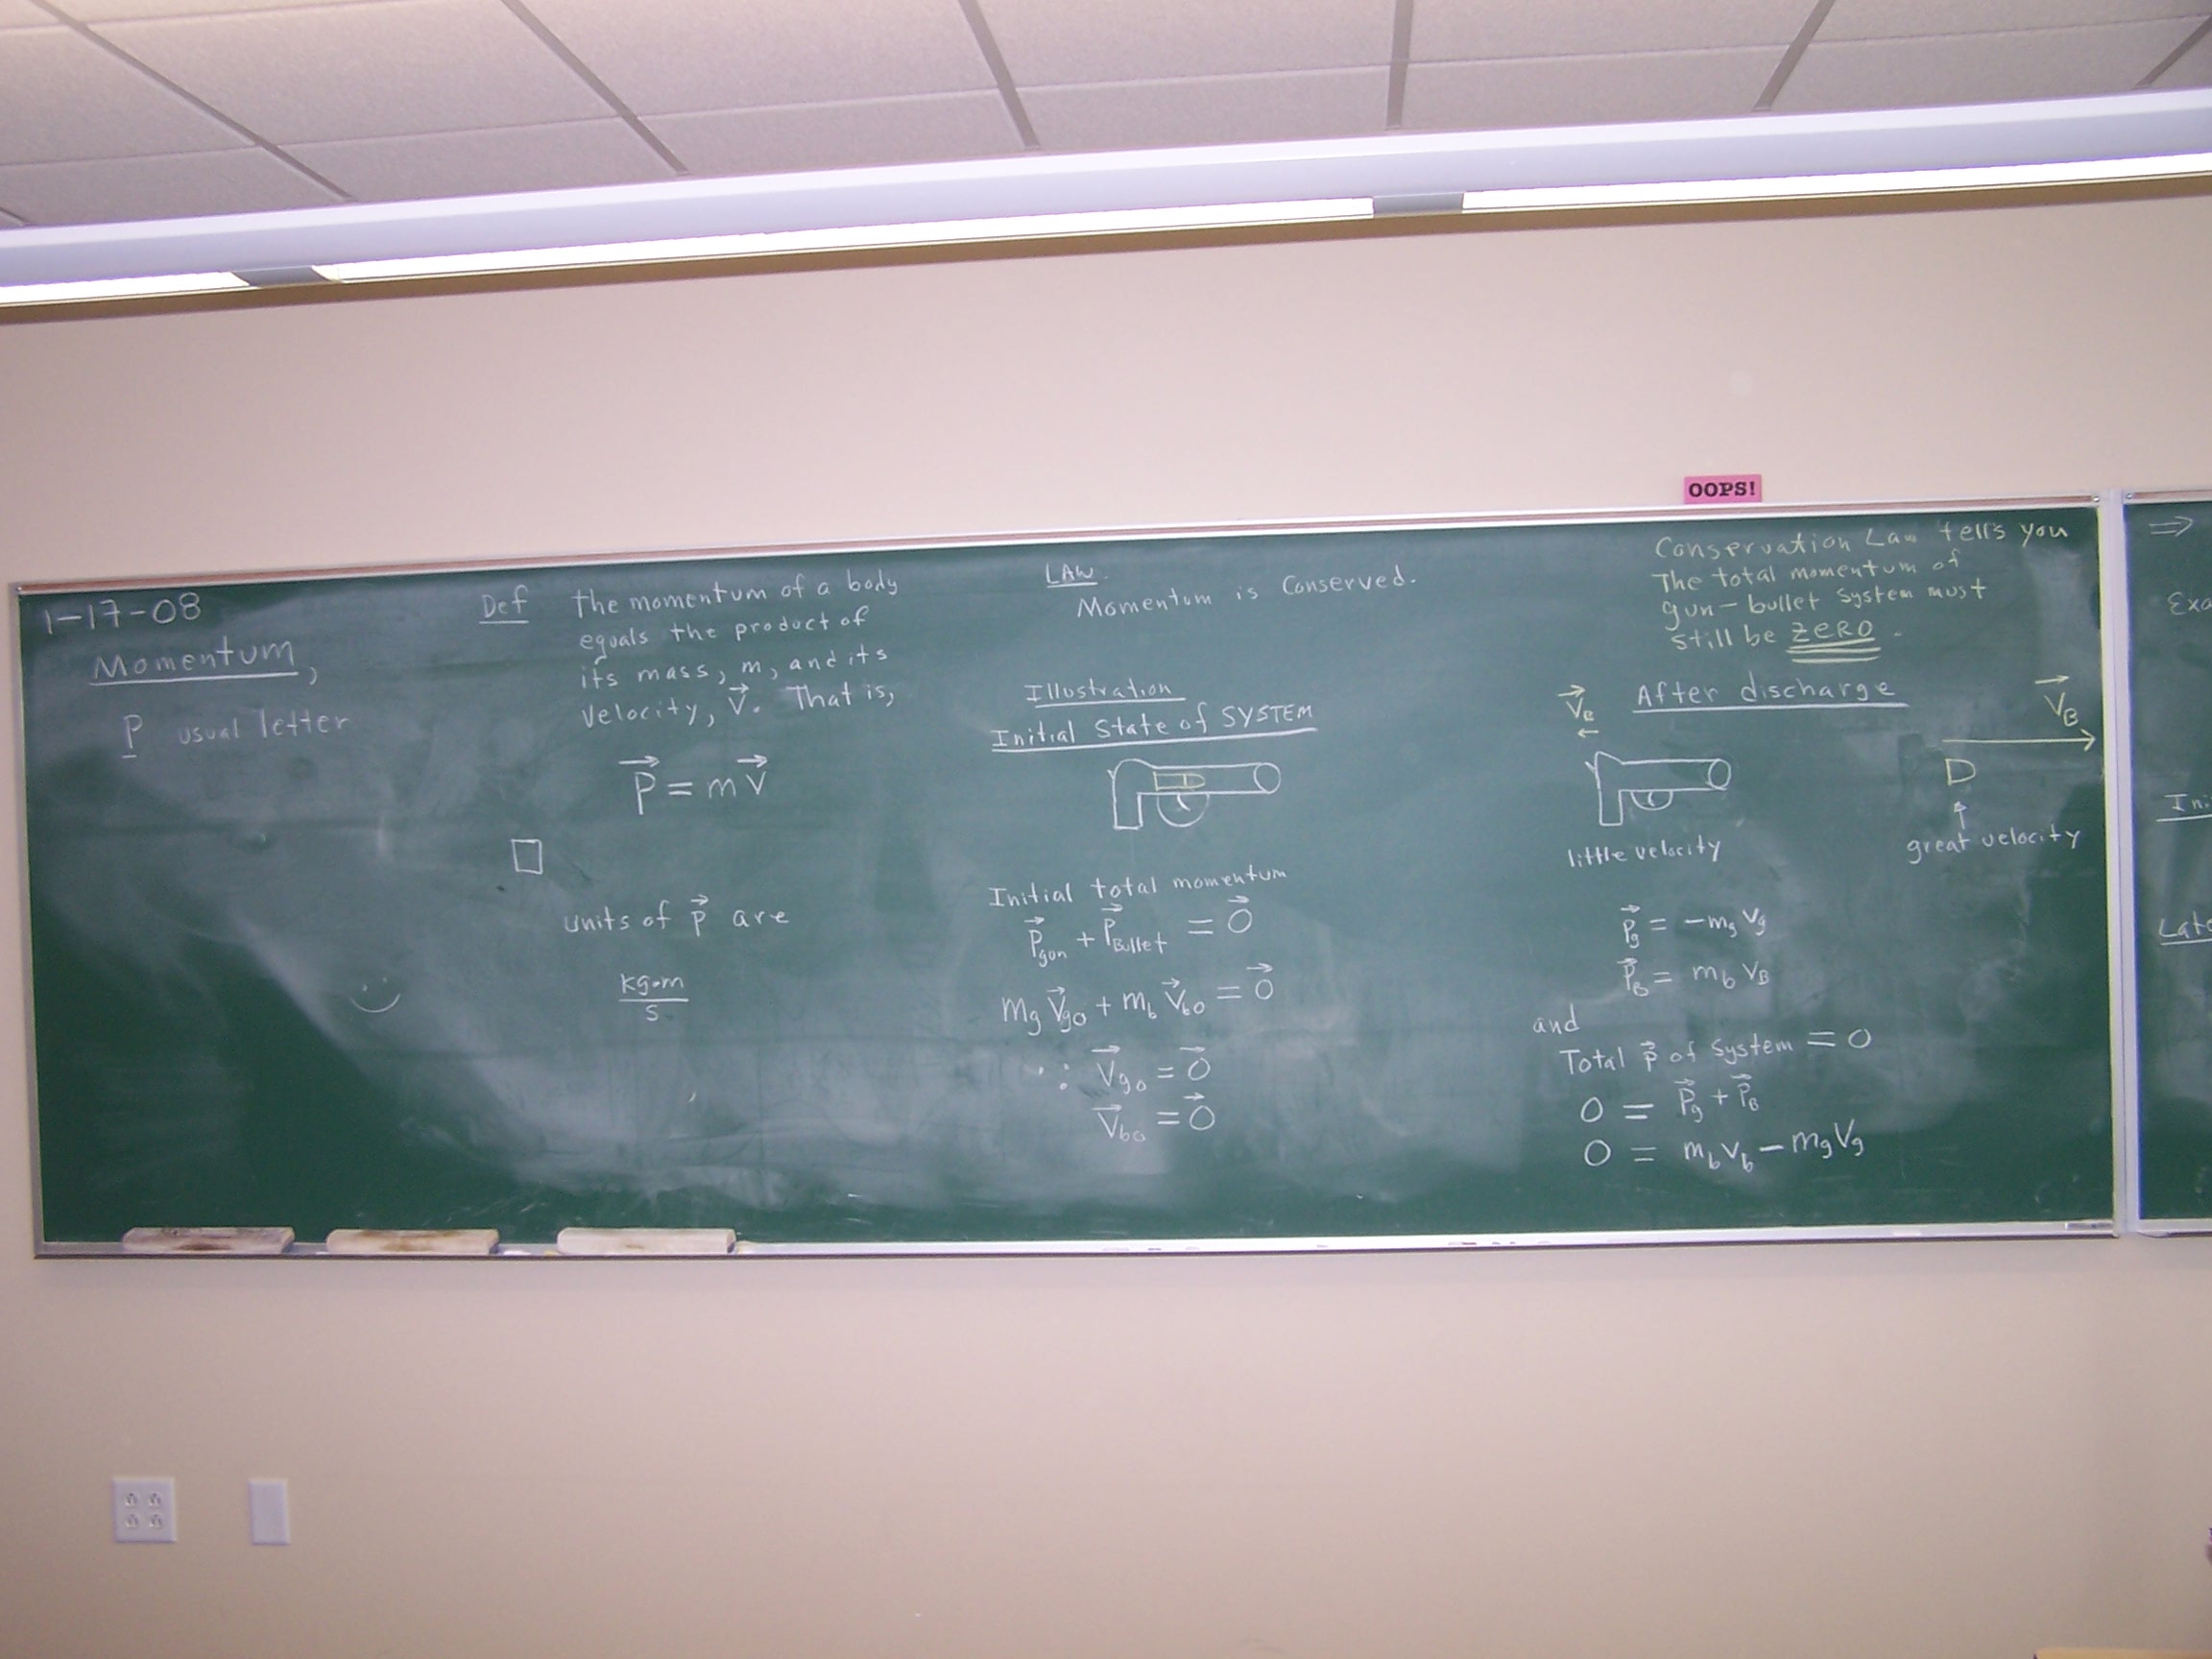 OOPS!
1-17-08
Momentum,
P usual letter
Def The momentum of a body
equals the product of
its mass, m, and its
velocity, V⃗. That is,
P⃗ = mV⃗
units of p⃗ are
kg·m
s
LAW.
Momentum is Conserved.
Illustration
Initial State of SYSTEM
Initial total momentum
P⃗gun + P⃗Bullet = 0⃗
mg V⃗go + mb V⃗bo = 0⃗
∴ V⃗go = 0⃗
V⃗bo = 0⃗
Conservation Law tells you
The total momentum of
gun-bullet system must
still be ZERO.
After discharge
V⃗B
little velocity
great velocity
P⃗g = -mg Vg
P⃗B = mb VB
and
Total p⃗ of System = 0
0 = P⃗g + P⃗B
0 = mbVb - mgVg
⇒